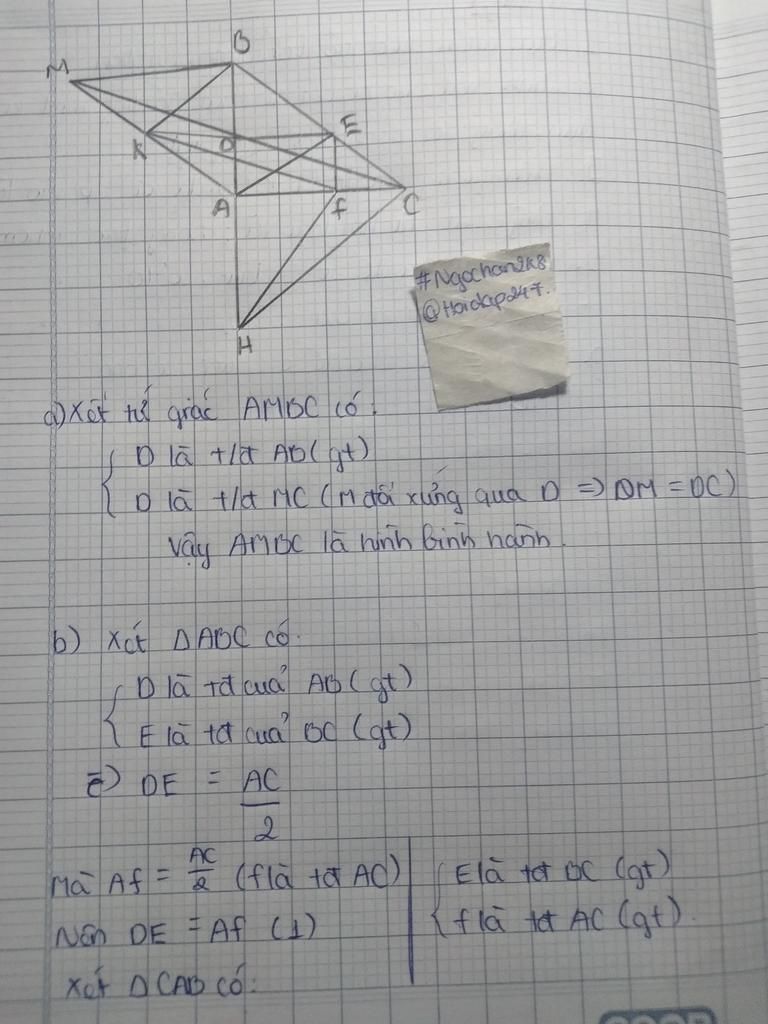 B
M
E
K
D
A
f
C
#Ngochan2k8
@Hoidap247.
H
a) Xét tứ giác AMBC có:
D là t/đ AB (gt)
D là t/đ MC (M đối xứng qua D => DM = DC)
Vậy AMBC là hình bình hành.
b) Xét ΔABC có:
D là tđ của AB (gt)
E là tđ của BC (gt)
=> DE = AC/2
Mà Af = AC/2 (f là tđ AC)
Nên DE = Af (1)
Xét ΔCAB có:
E là tđ BC (gt)
f là tđ AC (gt).